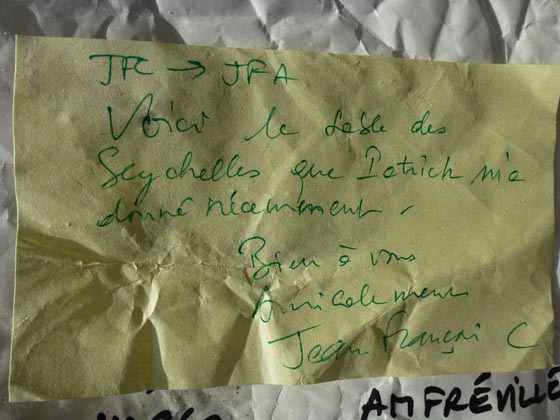 JFC → JFA
Voici le sable des
Seychelles que Patrick m'a
donné récemment.
Bien à vous
Amicalement
Jean François C
AMFRÉVILLE